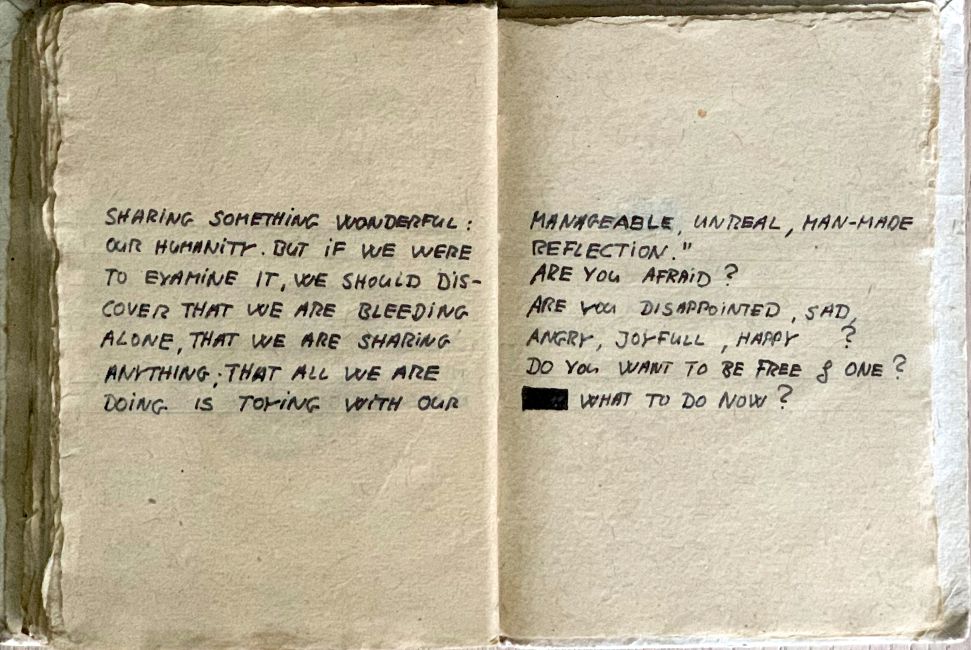 SHARING SOMETHING WONDERFUL:
OUR HUMANITY. BUT IF WE WERE
TO EXAMINE IT, WE SHOULD DIS-
COVER THAT WE ARE BLEEDING
ALONE, THAT WE ARE SHARING
ANYTHING; THAT ALL WE ARE
DOING IS TOYING WITH OUR
MANAGEABLE, UNREAL, MAN-MADE
REFLECTION."
ARE YOU AFRAID?
ARE YOU DISAPPOINTED, SAD,
ANGRY, JOYFULL, HAPPY ?
DO YOU WANT TO BE FREE & ONE?
WHAT TO DO NOW?